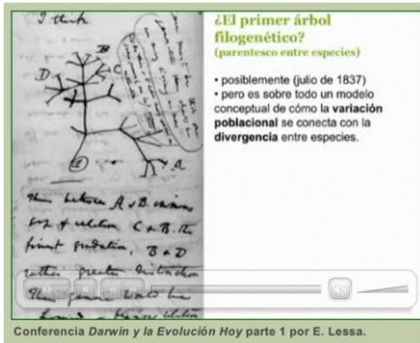 I think
B
D
C
A
1
Thus between A & B. immense
gap of relation. C & B. the
finest gradation, B & D
rather greater distinction
Thus genera would be
formed. — bearing relation
¿El primer árbol
filogenético?
(parentesco entre especies)
• posiblemente (julio de 1837)
• pero es sobre todo un modelo
conceptual de cómo la variación
poblacional se conecta con la
divergencia entre especies.
Conferencia Darwin y la Evolución Hoy parte 1 por E. Lessa.